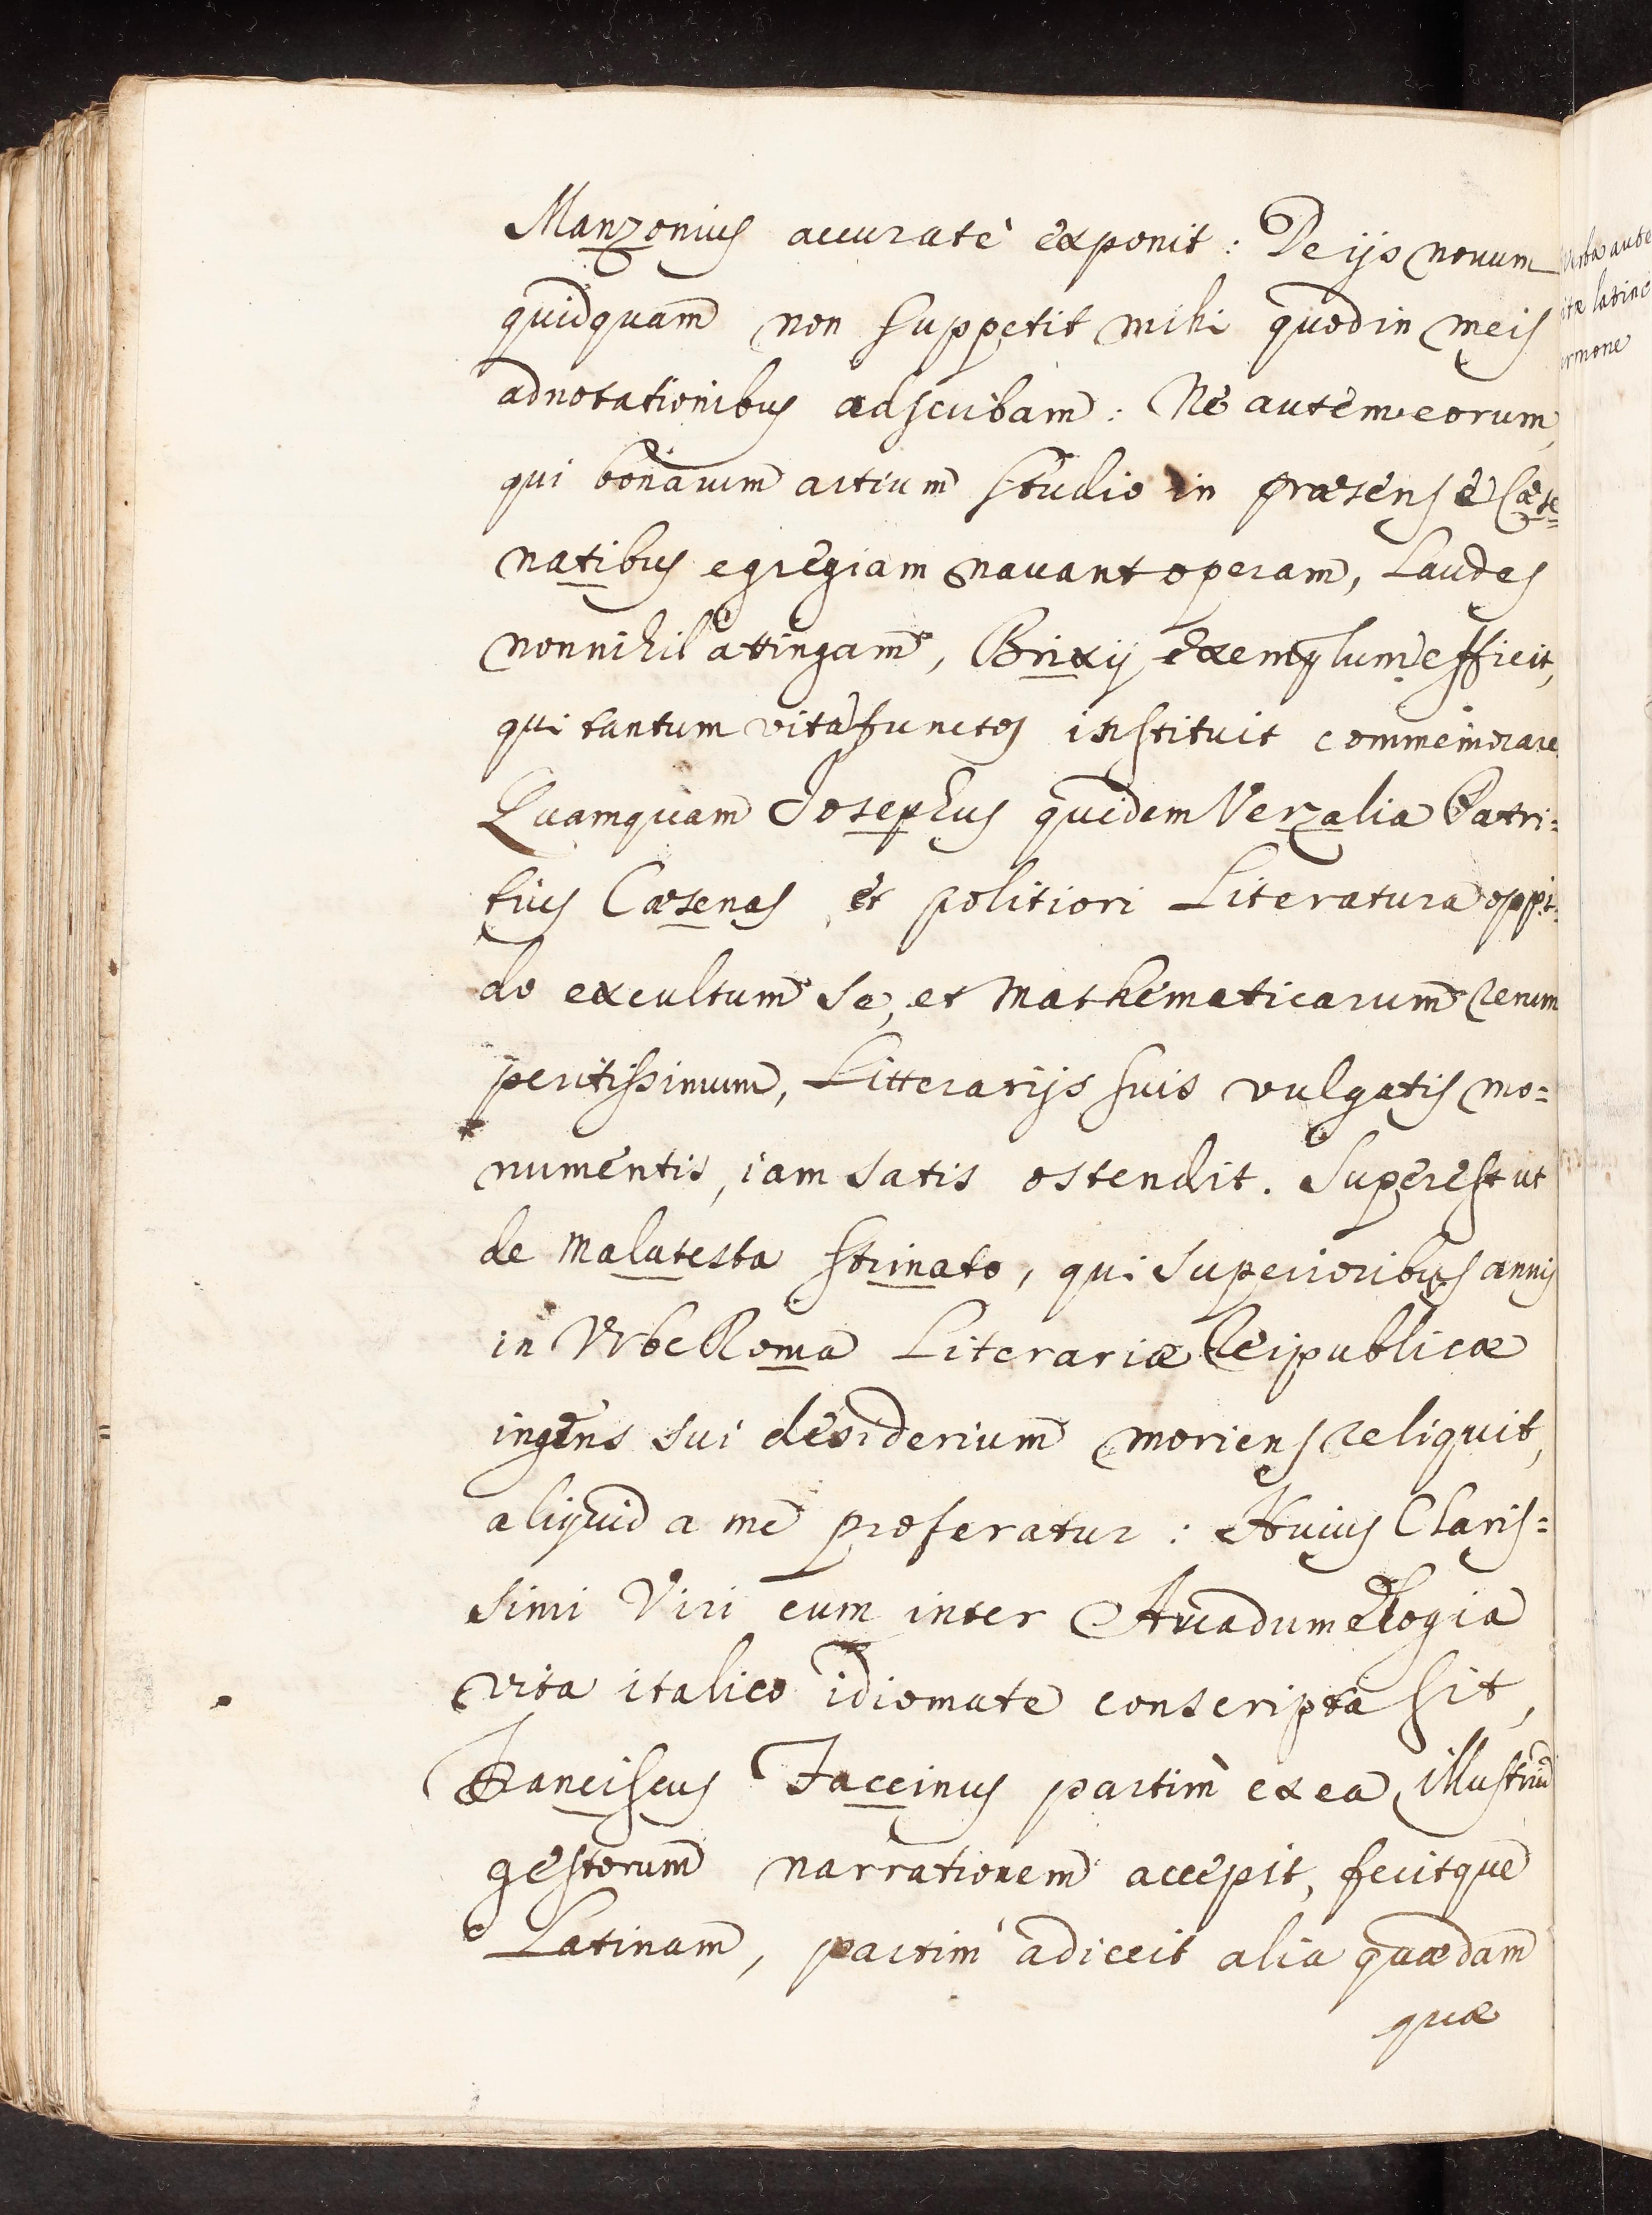 Manzonius accuratè exponit: De ijs novum
quidquam non suppetit mihi quod in meis
adnotationibus adscribam: Ne autem eorum,
qui bonarum artium studio in præsens è Cæse=
natibus egregiam navant operam, Laudes
nonnihil attingam, Brixij exemplum efficit,
qui tantum vitâ functos instituit commemorare.
Quamquam Josephus quidem Verzalia Patri=
tius Cæsenas et politiori Literatura oppi=
do excultum se, et Mathematicarum rerum
peritissimum, Litterarijs suis vulgatis mo=
numentis, iam satis ostendit. Superest ut
de Malatesta Strinato, qui superioribus annis
in Urbe Roma Literariæ Reipublicæ
ingens sui desiderium moriens reliquit,
aliquid a me proferatur: Huius Claris=
simi Viri cum inter Arcadum elogia
vita italico idiomate conscripta sit,
Franciscus Faccinus partim ex ea, illustriũ
gestorum narrationem accepit, fecitque
Latinam, partim adiecit alia quædam
quæ
Verba aute
itæ latine
ermone